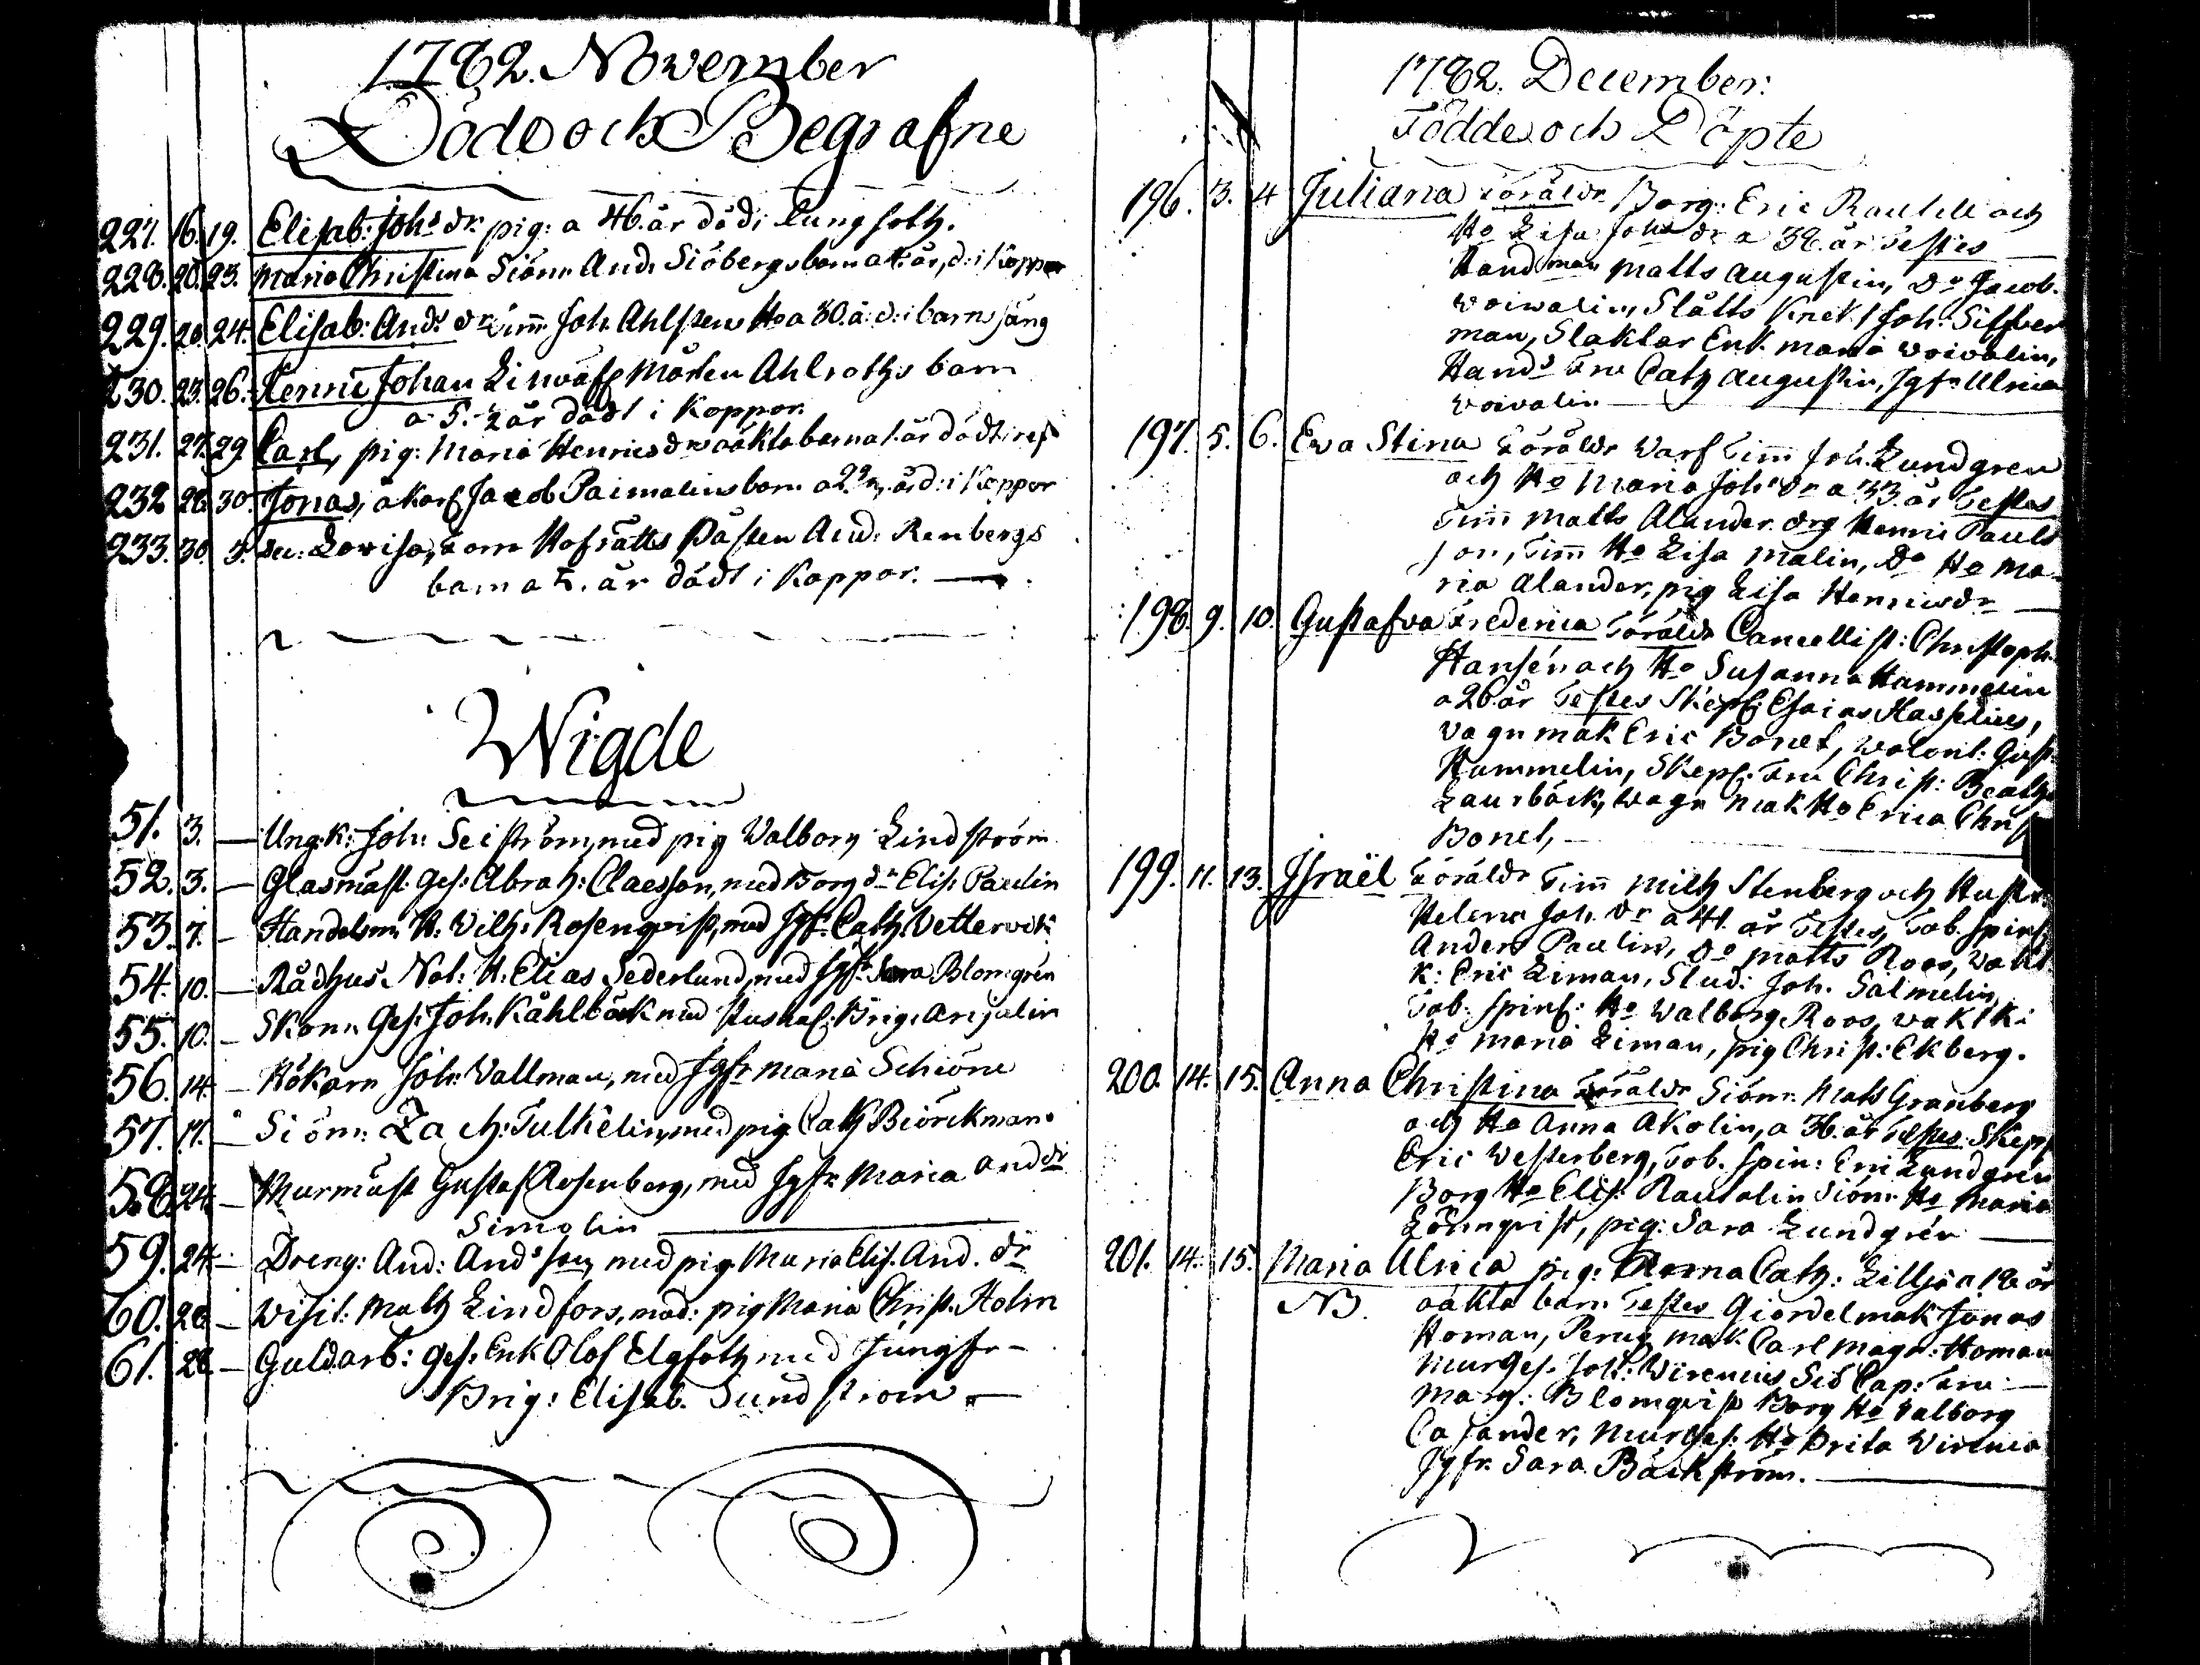 1782. November
Döde och Begrafne
227. 16. 19. Elisab: Johs dr. pig: a 46. år död i lungsoth.
228. 20. 23. Maria Christina Siöm And: Siöbergs barn a år, d: i Koppor
229. 20. 24. Elisab: Ands dr Tim̄ Joh. Ahlsten Ho a 30. å: d: i barnsäng
230. 23. 26. Henric Johan Linwäf Mårten Ahlroths barn
a 5. år dödt i Koppor.
231. 27. 29 Carl, pig: Maria Henricsdr oäkta barn a 1. år dödt i
232 28 30. Jonas, åkarf Jacob Paimalins barn a 2 år d: i Koppor
233. 30. 3. Lovisa, Hofrätts And: Renbergs
barn a år dödt i Koppor.
Wigde
51. 3. Ungk: Joh: Seiström, med pig Valborg Lindström
52. 3. Glasmäst Ges: Abrah: Claesson, med Borg dr Elis: Paulin
53. 7. Handelsm H. Wilh: Rosenqvist, med Jgfr. Cath. Vettervik
54. 10. Rådhus Not: H. Elias Sederlund, med Jgfr Sara Blomgrén
55. 10. Skom Ges: Joh: Kåhlbäck med Hushåf: Brig: Anjalin
56. 14. Hökarn Joh: Vallman, med Jgfr Maria Schiöne
57. 17. Siöm: Zach: Tulkelin, med pig Cath Biörckman
58. 24. Murmäst Gustaf Rosenberg, med Jgfr Maria And dr
Simolin
59. 24 Dreng: And: Andsson, med pig Maria Elis. And. dr
60. 28 Visit: Math Lindfors, med: pig Maria Christ. Holm
61. 28. Guldarb: Ges: Enk Olof Elgfoth med Jungfr
Brig: Elisab. Sundström
1782. December:
Födde och Döpte
196. 3. 4 Juliana Föräldr Borg: Eric Rautell och
Ho Lisa Johs dr a 38. år Testes
Handman Matts Augustin, Do Jacob
Woivalin, Slåtts Knekt Joh: Silfver
man, Slaktar Enk. Maria Woivalin,
Hands Fru Cath Augustin, Jgfr Ulrica
Woivalin
197. 5. 6. Eva Stina Föräldr Varf Tim̄ Joh. Lundgren
och Ho Maria Johs dr a 33. år Testes
Tim̄ Matts Alander. drg Henric Pauls
son, Tim̄ Ho Lisa Malin, Do Ho Ma
ria Alander, pig Lisa Henricsdr
198. 9. 10. Gustafva Frederica Föräldr Cancellist: Christoph
Hansén och Ho Susanna Hammelin
a 26 år Testes Skepf: Esaias Hasselius,
Vagnmak Eric Bonet, Volont: Gust
Hammelin, Skepf: Fru Christ: Beatha
Laurbäck, Wagn mak Ho Erica Christ
Bonet,
199. 11. 13. Israël Föräldr Tim̄ Mich Stenberg och Hustr:
Helena Joh. dr a 41. år Testes, Tob. Spinf:
Anders Paulin, Do Matts Roos, vakt
k: Eric Liman, Stud: Joh. Salmelin,
Tob. Spinf: Ho Walborg Roos, vakt k:
Ho Maria Liman, pig Christ: Ekberg.
200. 14. 15. Anna Christina Föräldr Siöm: Mats Granberg
och Ho Anna Akolin, a 36. år Testes Skepp
Eric Westerberg, Tob. Spin: Eric Lundgren
Borg Ho Elis: Rautalin Siöm Ho Maria
Lönnqvist, pig: Sara Lundgrén
201. 14. 15. Maria Ulrica pig: Anna Cath: Lillja a 18 år
NB. oäkta barn Testes Giördelmak Jonas
Homan, Peruq mak. Carl Magn: Homan
Mur Ges. Joh: Virenius Sid Cap: Fru
Marg: Blomqvist Borg Ho Valborg
Casander, Mur Ges: Ho Brita Virenia
Jgfr. Sara Bäckström.